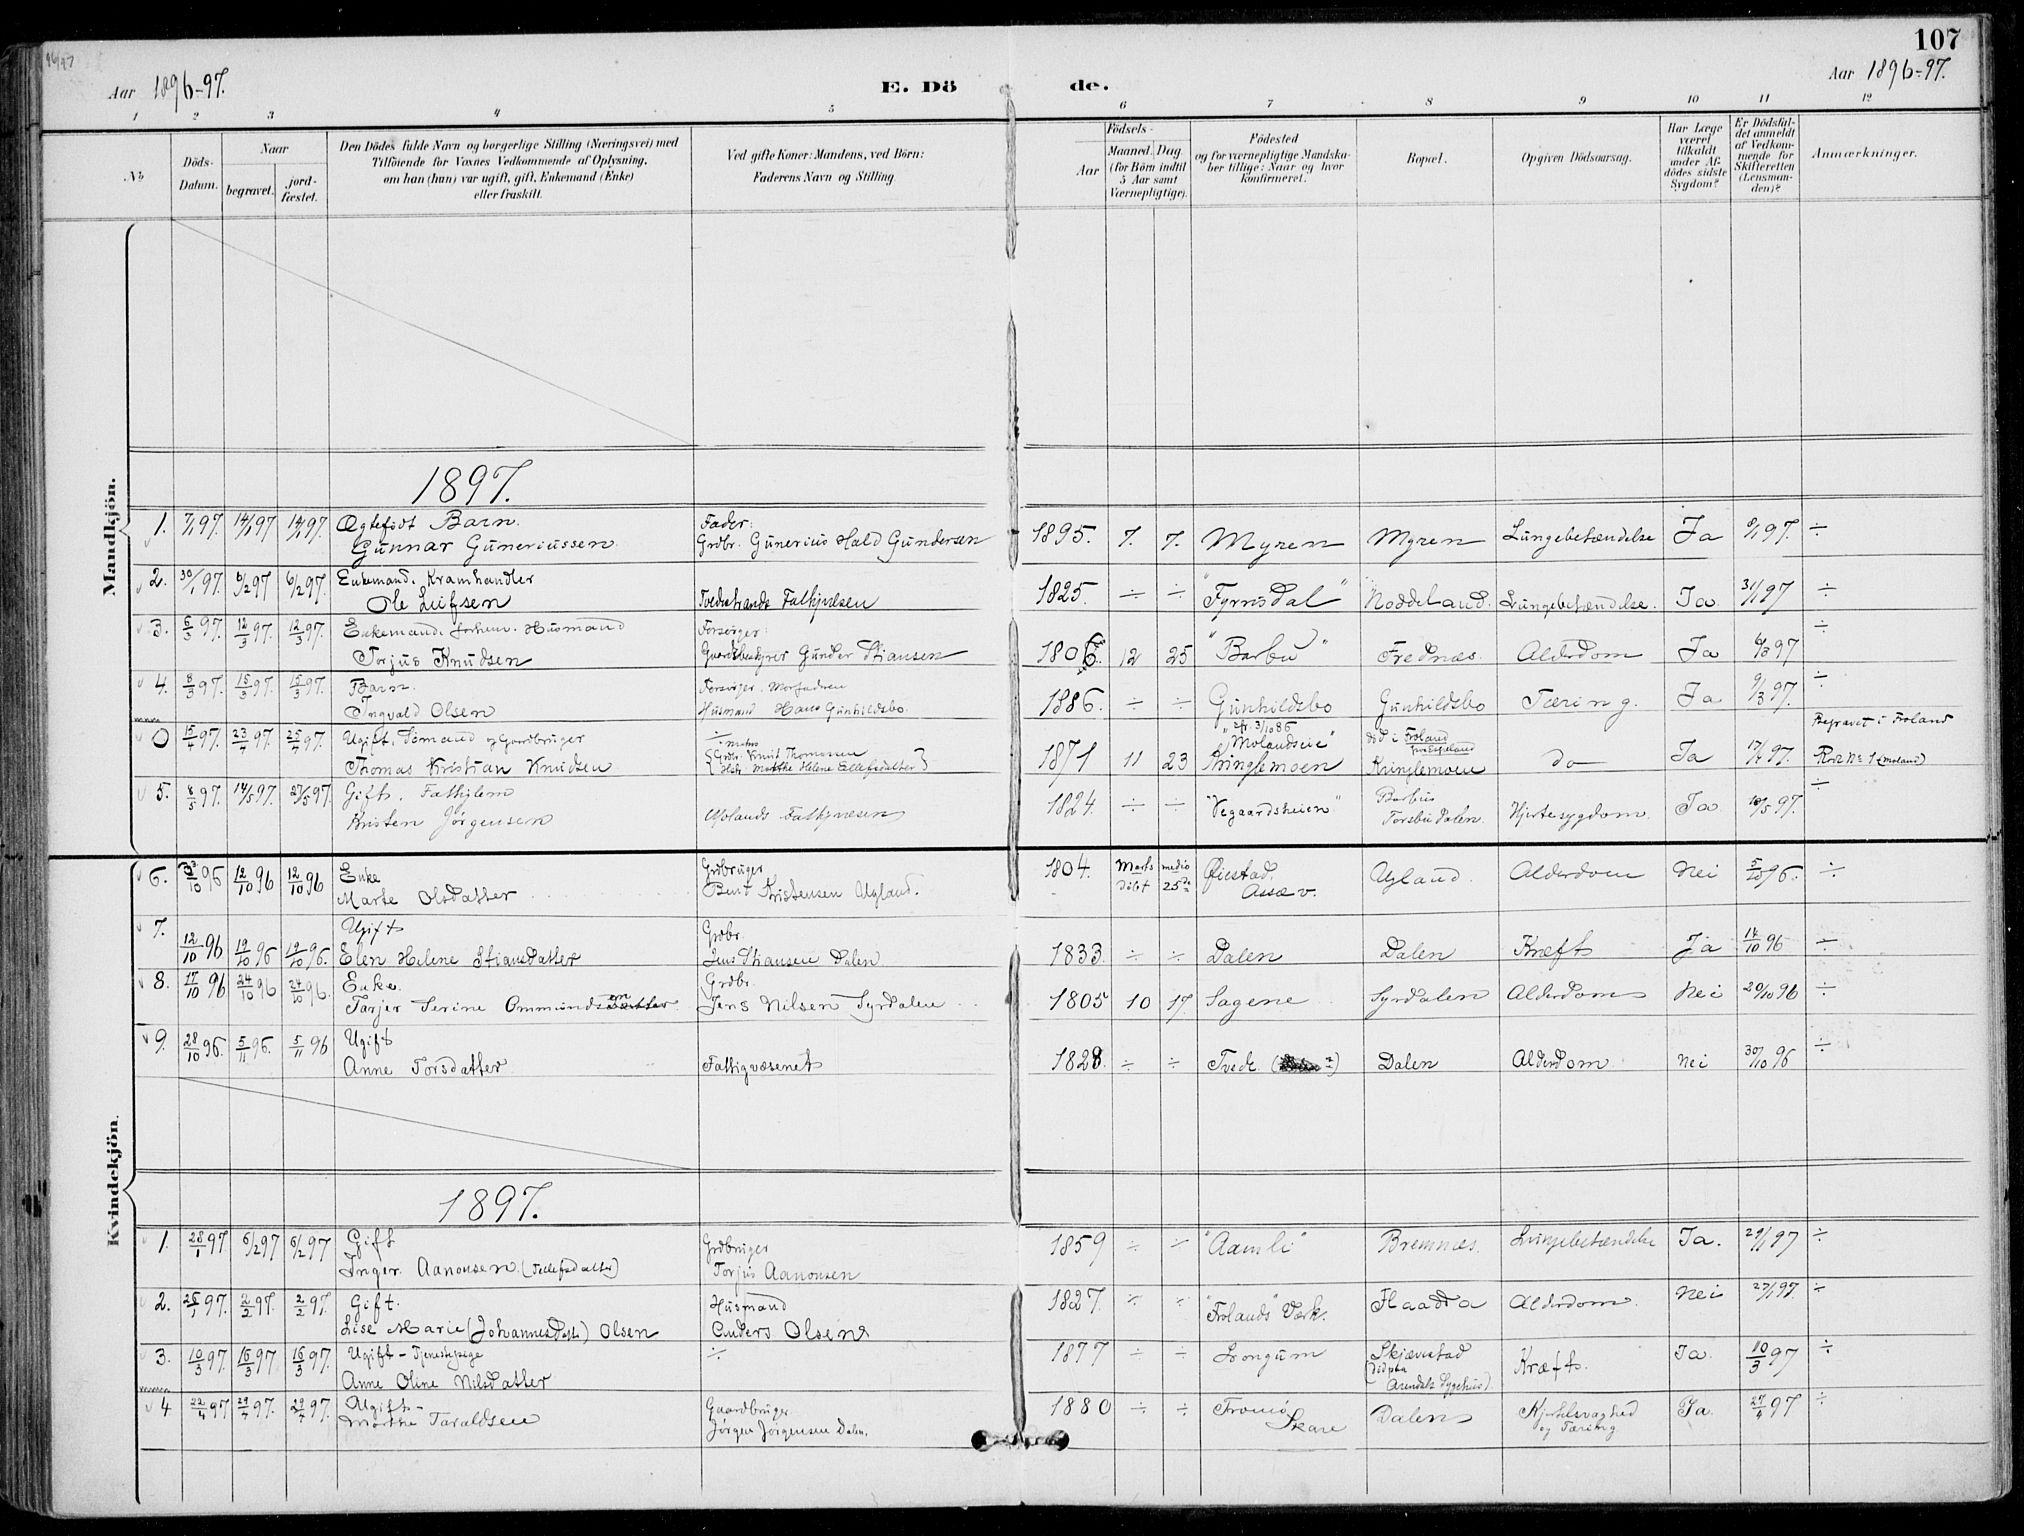 96/97
107
Aar 1896-97.
E. Dö de.
Aar 1896-97.
1 2 3 4 5 6 7 8 9 10 11 12
No
Döds-Datum.
Naar
begravet.
jord-fæstet.
Den Dödes fulde Navn og borgerlige Stilling (Næringsvei) med
Tilföiende for Voxnes Vedkommende af Oplysning,
om han (hun) var ugift, gift, Enkemand (Enke)
eller fraskilt.
Ved gifte Koner: Mandens, ved Börn:
Faderens Navn og Stilling
Födsels-
Aar
Maaned. Dag.
(for Börn indtil
5 Aar samt
Værnepligtige).
Födested
og for værnepligtige Mandska-
ber tillige: Naar og hvor
konfirmeret.
Bopæl.
Opgiven Dödsaarsag.
Har Læge
været
tilkaldt
under Af-
dödes sidste
Sygdom?
Er Dödsfal-
det anmeldt
af Vedkom-
mende for
Skifteretten
(Lensman-
den)?
Anmærkninger.
Mandkjön.
1897.
1. 7/1 97. 14/1 97 14/1 97. Ægtefødt Barn. Fader:
Gunnar Guneriussen. Grdbr. Gunerius Hald Gundersen 1895. 7. 7. Myren Myren Lungebetændelse Ja 9/1 97. ÷
2. 30/1 97. 6/2 97 6/2 97. Enkemand. Kramhandler
Ole Leifsen Tvedestrands Fattigvæsen 1825. ÷ ÷ "Fyrrisdal" Noddeland. Lungebetændelse. Ja. 31/1 97 ÷
3. 6/3 97. 12/3 97. 12/3 97. Enkemand. forhenv. Husmand Forsørger:
Torjus Knudsen Gaardbestyrer Gunder Stiansen 1806. 12 25 "Barbu" Frednæs. Alderdom Ja 6/3 97 ÷
4. 8/3 97. 15/3 97. 15/3 97. Barn. Forsørger. Morfaderen
Ingvald Olsen Husmand Hans Gunhildsbo. 1886. ÷ ÷ Gunhildsbo Gunhildsbo Tæring. Ja 9/3 97. ÷
0 15/4 97. 23/4 97. 25/4 97. Ugift. Sømand og Gaardbruger ÷
Thomas Kristian Knudsen { Grdbr. Knut Thomassen
Hstr. Marthe Helene Ellefsdatter } 1871 11 23 kfr. 3/10 86
"Molandseie"
Kringlemoen død i Froland
Kringlemoen do Ja 17/4 97. Begravet i Froland
Røde No 1 (Moland)
5. 8/5 97. 14/5 97. 27/5 97. Gift. Fattiglem
Kristen Jørgensen Øplands Fattigvæsen 1824. ÷ ÷ "Vegaardsheien" Barbus
Torsbudalen. Hjertesygdom. Ja 10/5 97. ÷
Kvindekjön.
6. 3/10 96 12/10 96 12/10 96 Enke Grdbruger
Marte Olsdatter Bent Kristensen Ugland. 1804. Marts
døbt medio
25de Øiestad,
Assæv. Ugland. Alderdom Nei 5/10 96. ÷
7. 12/10 96 19/10 96 19/10 96. Ugift Grdbr.
Elen Helene Stiansdatter Jens Stiansen Dalen 1833. ÷ ÷ Dalen Dalen Kræft Ja 14/10 96 ÷
8. 17/10 96 24/10 96 24/10 96. Enke. Grdbr.
Tarjer Serine Ommundsen Jens Nilsen Syrdalen 1805 10 17. Sagene Syrdalen Alderdom Nei 20/10 96 ÷
9. 28/10 96. 5/11 96. 5/11 96 Ugift
Anne Torsdatter Fattigvæsenet 1828 ÷ ÷ Tvede. Dalen Alderdom Nei 30/10 96 ÷
1897.
1. 28/1 97 6/2 97 6/2 97 Gift Grdbruger
Inger Aanonsen (Tellefsdatter) Torjus Aanonsen 1859 ÷ ÷ "Aamli" Bremnæs. Lungebetændelse Ja. 29/1 97 ÷
2. 25/1 97. 2/2 97. 2/2 97. Gift. Husmand
Lise Marie (Johannesdatt) Olsen Anders Olsen 1827. ÷ ÷ "Frolands" Værk. Flaadra Alderdom. Nei 27/1 97. ÷
3. 10/3 97. 16/3 97. 16/3 97. Ugift - Tjenestepige ÷
Anne Oline Nilsdatter 1877 ÷ ÷ Longum Skjævestad
(død paa
Arendals Sygehus). Kræft. Ja. 10/3 97 ÷
4 22/4 97 29/4 97. 29/4 97. Ugift- Gaardbruger
Marthe Taraldsen Jørgen Jørgensen Dalen. 1880 ÷ ÷ Tromø
Skare Dalen Hjertesvaghed
og Tæring Ja. 27/4 97 ÷